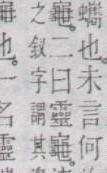 蠵也未言何
龜二曰靈龜
之叙字謂其
龜也一名靈